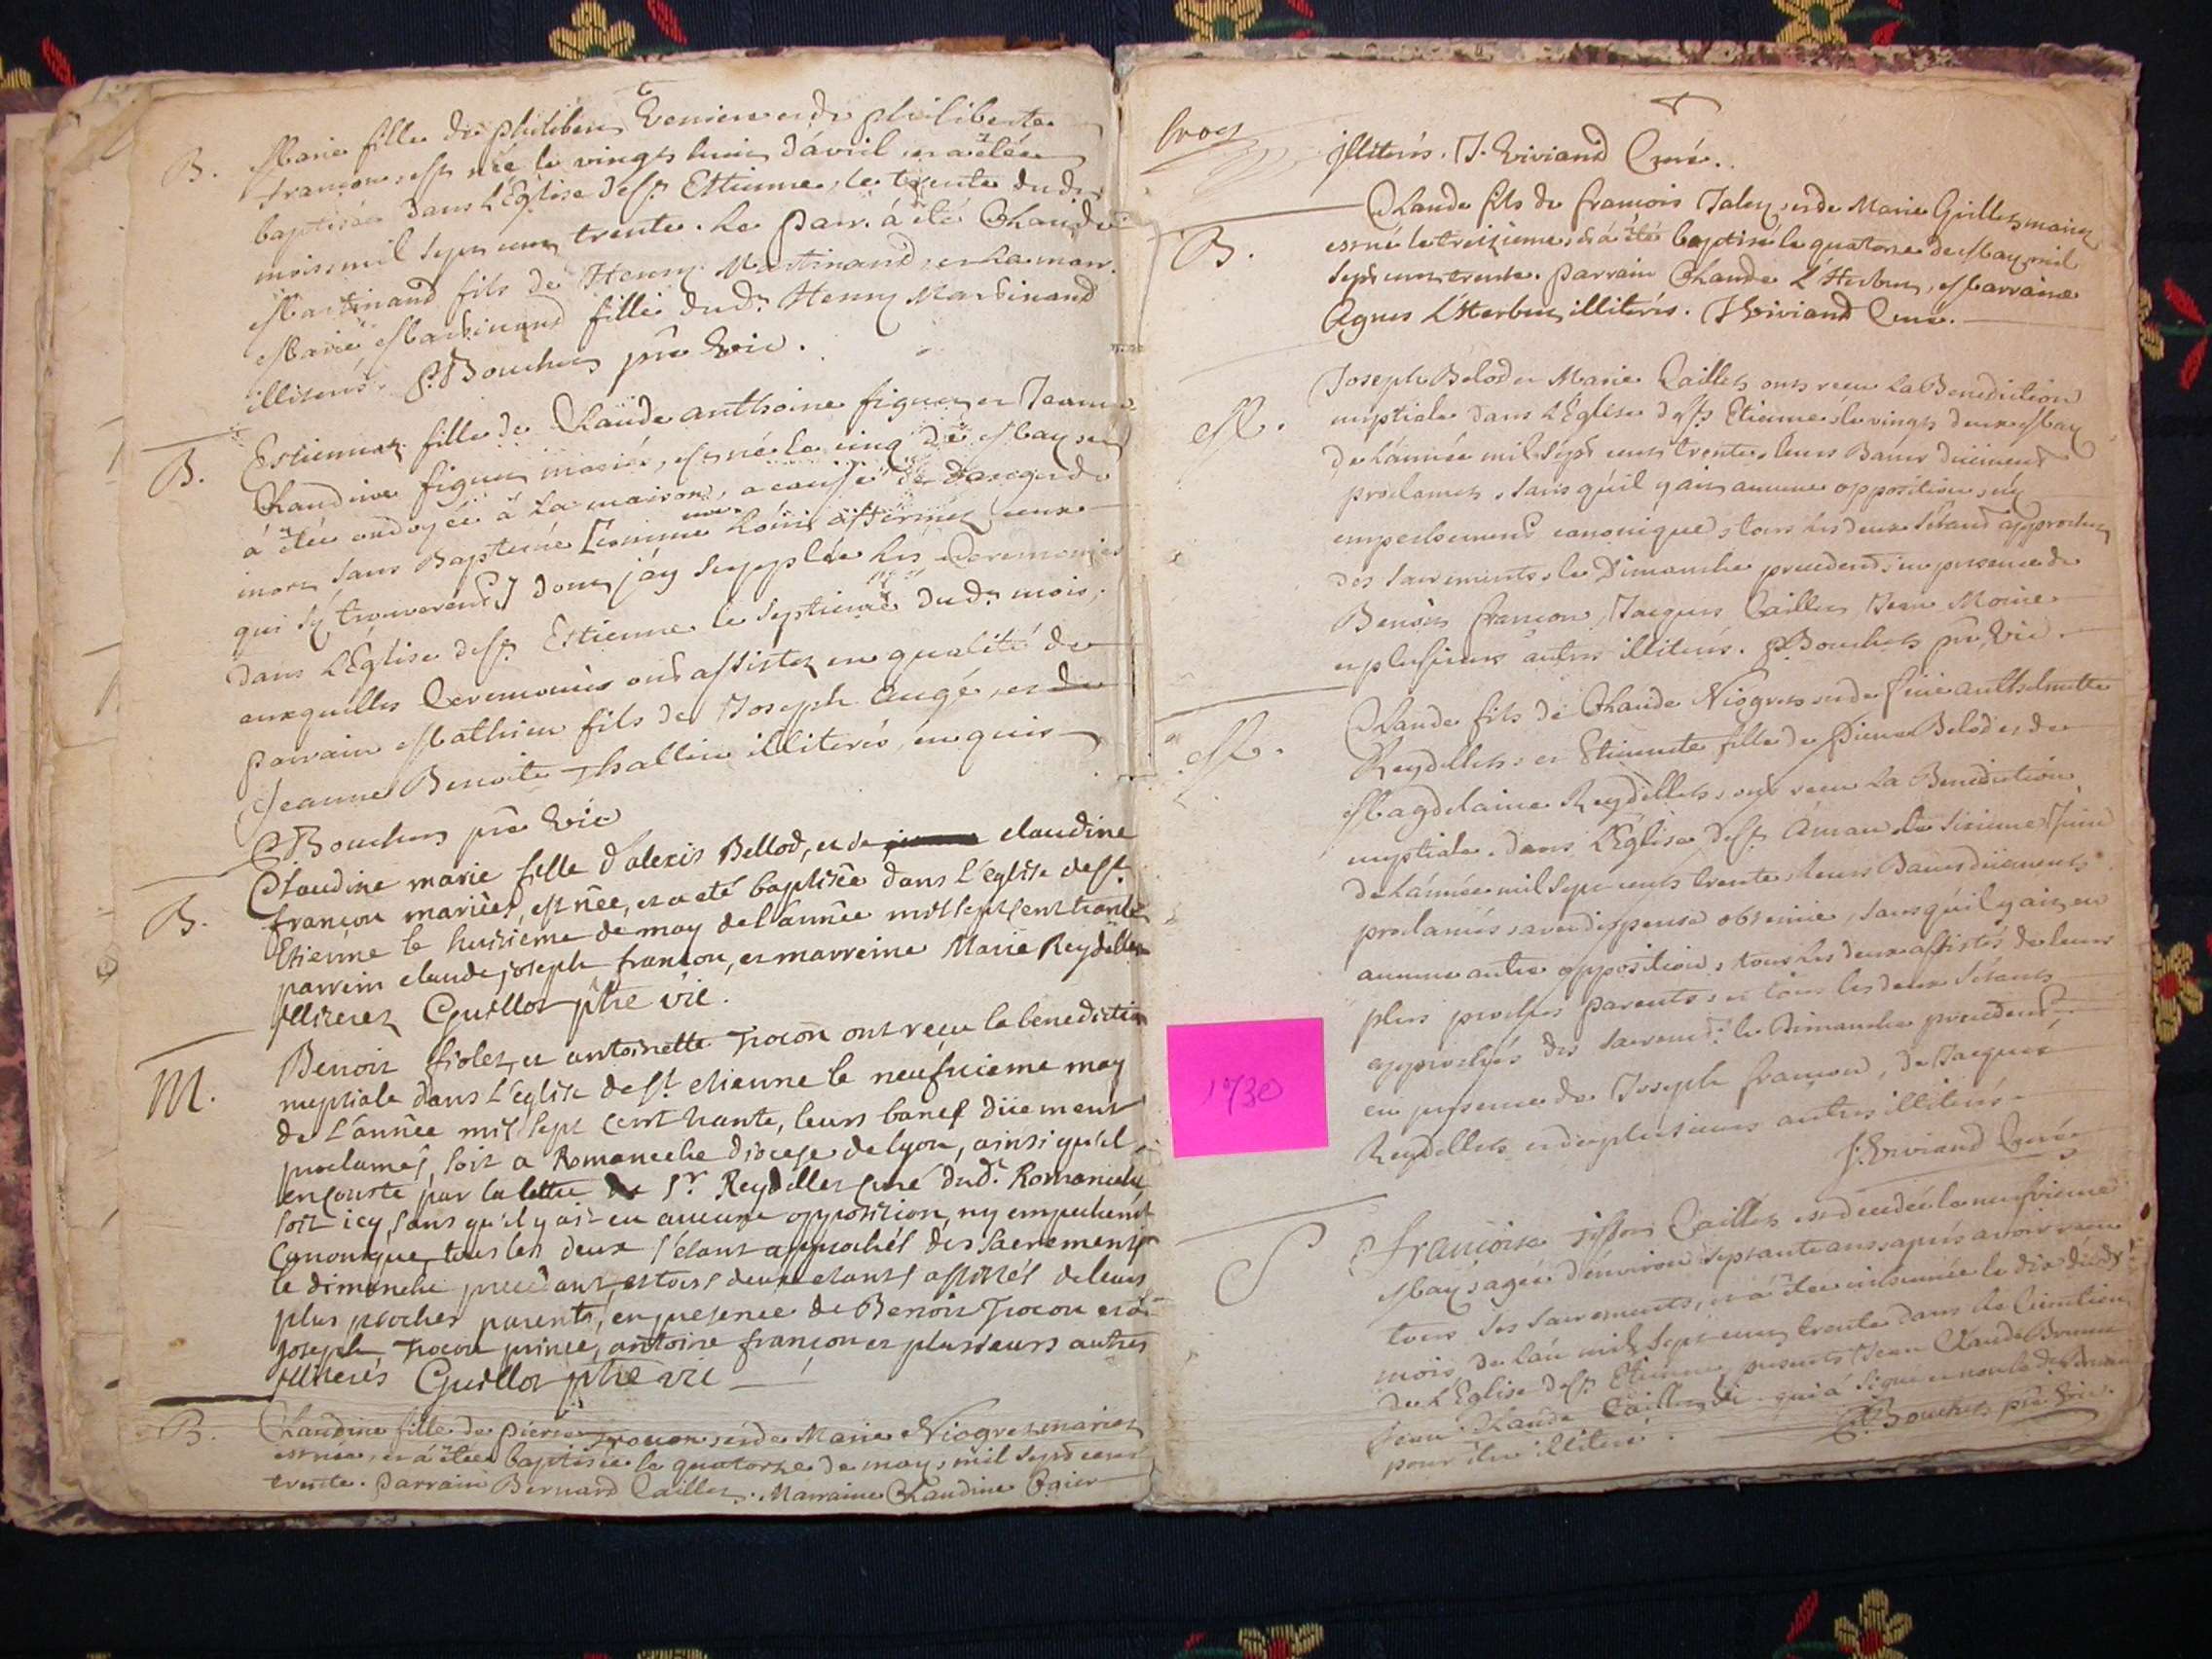 6
B. Marie fille de Philibert Veniere et de philiberte
francon, est née le vingt huit d'avril et a étée
baptisée dans L'Eglise de St. Estienne, le trente dudt
mois, mil sept cent trente. Le Parr. á été Claude
Martinand fils de Henry Martinand, et La marr.
Marie Martinand fille dudt Henry Martinand
illiterés. P. Bouchet ptre Vic.
B. Estiennaz fille de Claude anthoine figuet et Jeanne
Claudine figuet mariés, est née le cinq de May et
á étée ondoyée á La maison, a cause de danger de
mort sans Baptême [comme L'ont affermez ceux
qui s'y trouverent] dont j'ay supplée les Ceremonies
dans L'Eglise de St. Estienne le septieme dudt mois,
auxquelles Ceremonies ont assistez en qualité de
parrain Mathieu fils de Joseph Augé, et de
Jeanne Benoite Challin illiterés, enquis
P. Bouchet ptre Vic
B. Claudine marie fille d'alexis Bellod, et de claudine
françon mariés, est née, et a eté baptisée dans L'eglise de st.
Etienne le huitieme de may de l'année mil sept cent trante
parrein claude joseph françon, et marreine Marie Reydellet
illiterez Guillot ptre vic.
M. Benoit fiolet, et antoinette Trocon ont reçu la benediction
nuptiale dans L'eglise de st. etienne le neufvieme may
de L'année mil sept cent trante, leurs bancs düement
proclamés, soit a Romaneche diocese de Lyon, ainsi qu'il
enconste par la lettre de Sr. Reydellet curé dudt. Romaneche
soit icy, sans qu'il y ait eu aucune opposition, ny empechemt
canonique, tous les deux s'étant approchés des sacrements
le dimanche precedant, et tous deux etants assistés de leurs
plus proches parents, en presence de Benoit Trocon et de
joseph Trocon prince, antoine françon et plusieurs autres
illiterés Guillot ptre vic
B. Claudine fille de pierre Trocon, et de Marie Niogret mariez
est née, et á étée baptisée le quatorze de may, mil sept cent
trente. parrain Bernard Caillet. Marraine Claudine
7
illiterés. J. Viviand Curé.
B. Claude fils de francois Jalley, et de Marie Guillet mariez
est né le treizieme, et á été baptisé le quatorze de May mil
sept cent trente. parrain Claude L'Herbet, Marraine
Agnes L'Herbet illiterés. J. Viviand Curé.
M. Joseph Belod et Marie Caillet ont receu La Benediction
nuptiale dans L'Eglise de St. Etienne, le vingt deux May
de L'année mil sept cent trente, leurs Bancs düement
proclamez, sans qu'il y ait aucune opposition, n'y
empechement canonique, tous les deux s'étant approchez
des sacrements, le Dimanche precedent, en presence de
Benoit francon, Jacques Caillet Jean Moine
et plusieurs autres illiterés. P. Bouchet ptre Vic.
M. Claude fils de Claude Niogret, et de Anthelmette
Reydellet, et Etiennette fille de Pierre Belod et de
Magdelaine Reydellet, ont receu La Benediction
nuptiale dans L'Eglise de St. Aman Le sixieme Juin
de L'année mil sept cents trente, leurs Bancs düement
proclamés, avec dispense obtenüe, sans qu'il y ait eu
aucune autre opposition, tous les deux assistés de leurs
plus proches parents, et tous les deux s'étants
approchés des sacremt. le Dimanche precedent
en presence de Joseph francon, de Jacques
Reydellet et de plusieurs autres illiterés.
J. Viviand Curé
S Francoise Caillet est decedée le neufvieme
May, agée d'environ septante ans, aprés avoir receu
tous ses sacrements, et á étée inhumée le dix dudt
mois de L'an mil sept cent trente dans le Cimetiere
de L'Eglise de St. Etienne, presents Jean Claude
Jean Claude Caillet qui á signé et non
pour être illiteré. P. Bouchet ptre Vic.
1730